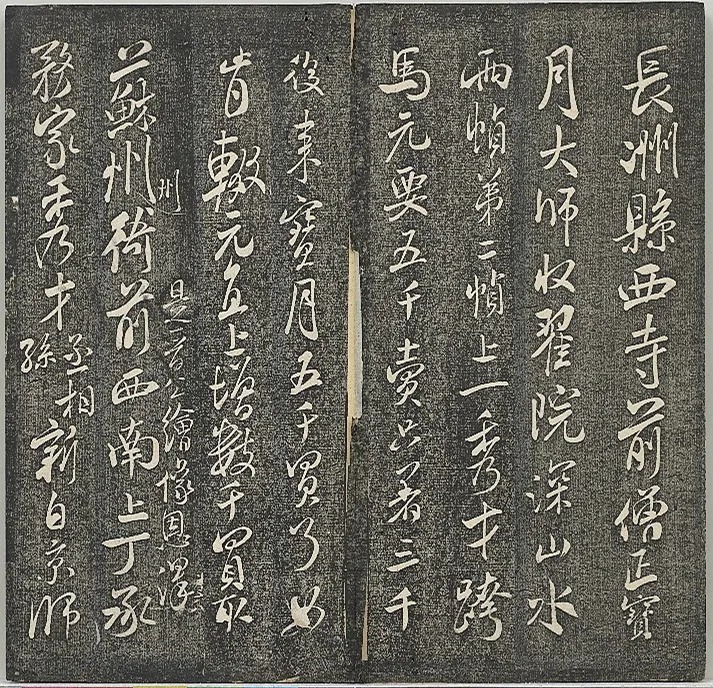 長洲縣西寺前僧正寶
月大師收翟院深山水
兩幀第二幀上一秀才跨
馬元要五千賣只著三千
後來寶月五千買了如
肯輟元直上增數千買取
州 是晉公繪像恩澤
蘇州衙前西南上丁承
務家秀才丞相孫新自京師